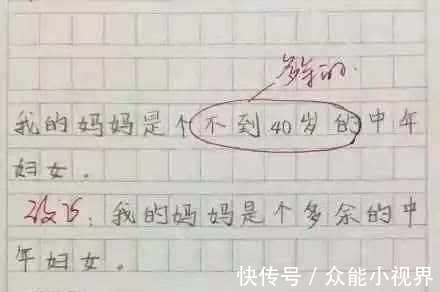 多余的.
我的妈妈是个不到40岁的中年
妇女。
改正：我的妈妈是个多余的中
年妇女。
快传号 / 众能小视界